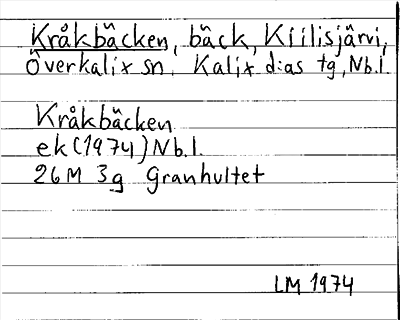 Kråkbäcken, bäck, Kiilisjärvi,
Överkalix sn. Kalix d:as tg, Nb.l.
Kråkbäcken
ek (1974) Nb.l.
26M 3g Granhultet
LM 1974